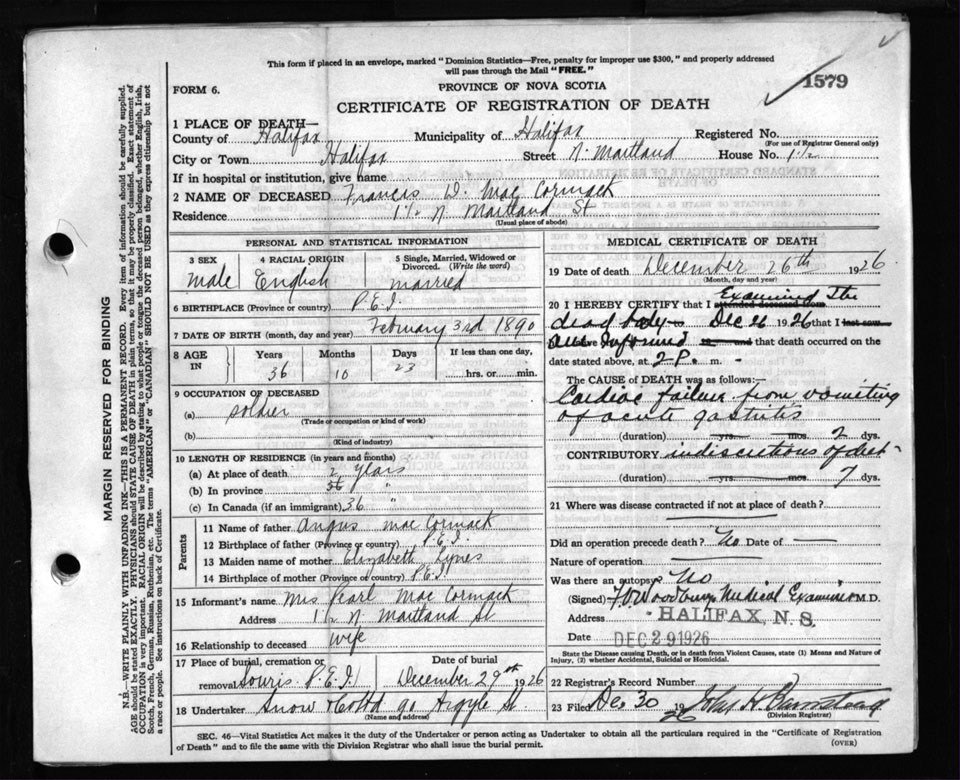 This form if placed in an envelope, marked "Dominion Statistics—Free, penalty for improper use $300," and properly addressed
will pass through the Mail "FREE."
1579
FORM 6.
PROVINCE OF NOVA SCOTIA
CERTIFICATE OF REGISTRATION OF DEATH
1 PLACE OF DEATH—
County of Halifax Municipality of Halifax Registered No.
(For use of Registrar General only)
City or Town Halifax Street N. Maitland House No. 1½
If in hospital or institution, give name
2 NAME OF DECEASED Francis D. Mac Cormack
Residence 1½ N Maitland St
(Usual place of abode)
PERSONAL AND STATISTICAL INFORMATION
3 SEX 4 RACIAL ORIGIN 5 Single, Married, Widowed or
Divorced. (Write the word)
male English married
6 BIRTHPLACE (Province or country) P.E.I.
7 DATE OF BIRTH (month, day and year) February 3rd 1890
8 AGE IN Years Months Days If less than one day,
36 10 23 hrs. or min.
9 OCCUPATION OF DECEASED
(a) soldier
(Trade or occupation or kind of work)
(b)
(Kind of industry)
10 LENGTH OF RESIDENCE (in years and months)
(a) At place of death 2 years
(b) In province 36 "
(c) In Canada (if an immigrant) 36 "
Parents
11 Name of father Angus Mac Cormack
12 Birthplace of father (Province or country) P.E.I.
13 Maiden name of mother Elizabeth
14 Birthplace of mother (Province or country) P.E.I.
15 Informant's name Mrs Pearl Mac Cormack
Address 1½ N Maitland St
16 Relationship to deceased wife
17 Place of burial, cremation or Date of burial
removal Souris P.E.I. December 29th 1926
18 Undertaker Snow & Co Ltd 90 Argyle St.
(Name and address)
MEDICAL CERTIFICATE OF DEATH
19 Date of death December 26th 1926
(Month, day and year)
20 I HEREBY CERTIFY that I attended deceased from Examined the
dead body Dec 26 1926 that I last saw
alive Informed and that death occurred on
date stated above, at 2 P. m.
The CAUSE OF DEATH was as follows:—
Cardiac failure from vomiting
of acute gastritis
(duration) yrs. mos. 2 dys.
CONTRIBUTORY indiscretions of diet
(duration) yrs. mos. 7 dys.
21 Where was disease contracted if not at place of death?
Did an operation precede death? No Date of
Nature of operation
Was there an autopsy? No
(Signed) Woodbury Medical Examiner M.D.
Address HALIFAX, N.S.
Date DEC 29 1926
State the Disease causing Death, or in death from Violent Causes, state (1) Means and Nature of
Injury, (2) whether Accidental, Suicidal or Homicidal.
22 Registrar's Record Number
23 Filed Dec 30 1926 John H. Barnstead
(Division Registrar)
SEC. 46—Vital Statistics Act makes it the duty of the Undertaker or person acting as Undertaker to obtain all the particulars required in the "Certificate of Registration
of Death" and to file the same with the Division Registrar who shall issue the burial permit.
(OVER)
MARGIN RESERVED FOR BINDING
N.B.—WRITE PLAINLY WITH UNFADING INK—THIS IS A PERMANENT RECORD. Every item of information should be carefully supplied.
AGE should be stated EXACTLY. PHYSICIANS should STATE CAUSE OF DEATH in plain terms, so that it may be properly classified. Exact statement of
OCCUPATION is very important. RACIAL ORIGIN will be described by stating to what people or tongue the deceased person belonged, whether English, Irish,
Scotch, French, German, Russian, Ruthenian, etc. The terms "AMERICAN" or "CANADIAN" SHOULD NOT BE USED as they express citizenship but not
a race or people. See instructions on back of Certificate.